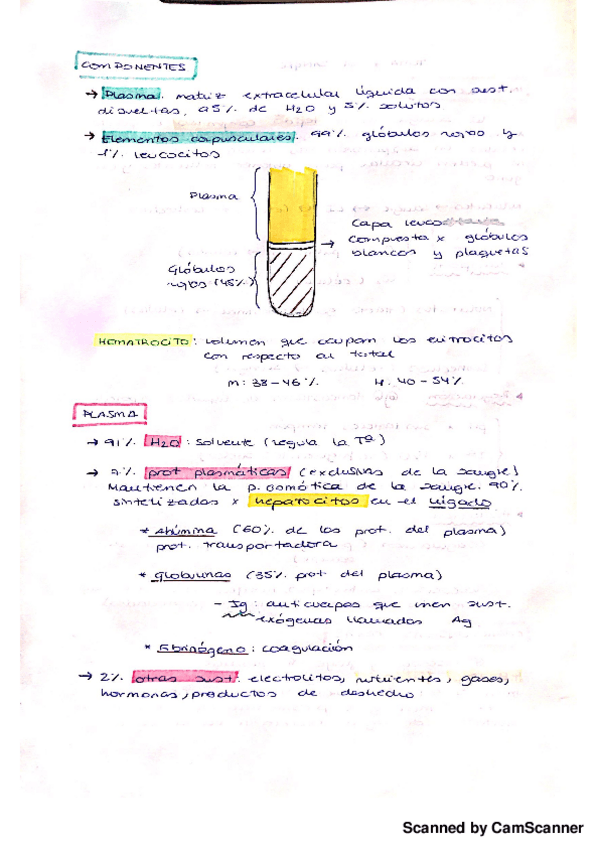 COMPONENTES
→ Plasma. matriz extracelular líquida con sust.
disueltas, 95% de H2O y 5% solutos
→ Elementos corpusculares. 99% glóbulos rojos y
1% leucocitos
Plasma
→ Capa leuco
compuesta x glóbulos
blancos y plaquetas
Glóbulos
rojos (45%)
HEMATROCITO: volumen que ocupan los eritrocitos
con respecto al total
M: 38-46%. H: 40-54%
PLASMA
→ 91% H2O: solvente (regula la Tª)
→ 7% prot plasmáticas (exclusivas de la sangre)
Mantienen la p. osmótica de la sangre. 90%
sintetizadas x hepatocitos en el hígado
* Albúmina (60% de las prot. del plasma)
prot. transportadora
* Globulinas (35% prot del plasma)
- Ig: anticuerpos que unen sust.
exógenas llamados Ag
* Fibrinógeno: coagulación
→ 2% otras sust. electrolitos, nutrientes, gases,
hormonas, productos de deshecho
Scanned by CamScanner